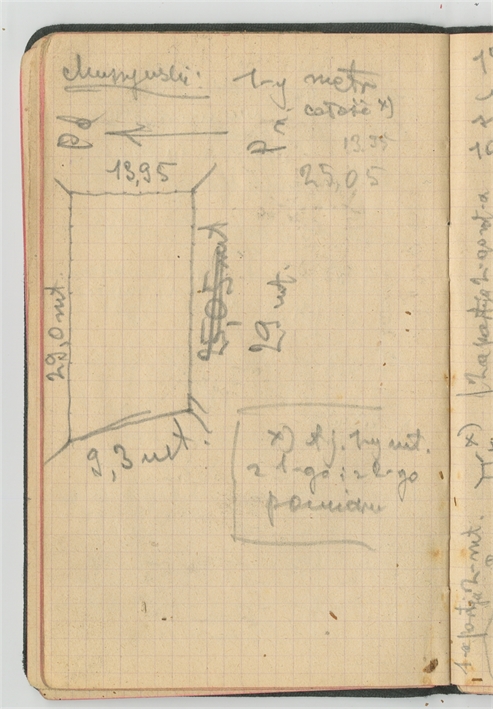 Muszyński:
1-y metr
całość x)
Pd
Pn
13,95
13,95
25,05
29,0 mt.
25,05 mt
29 mt.
9,3 mt.
x) tj. 1-y mt.
z 1-go i z 2-go
pomiaru